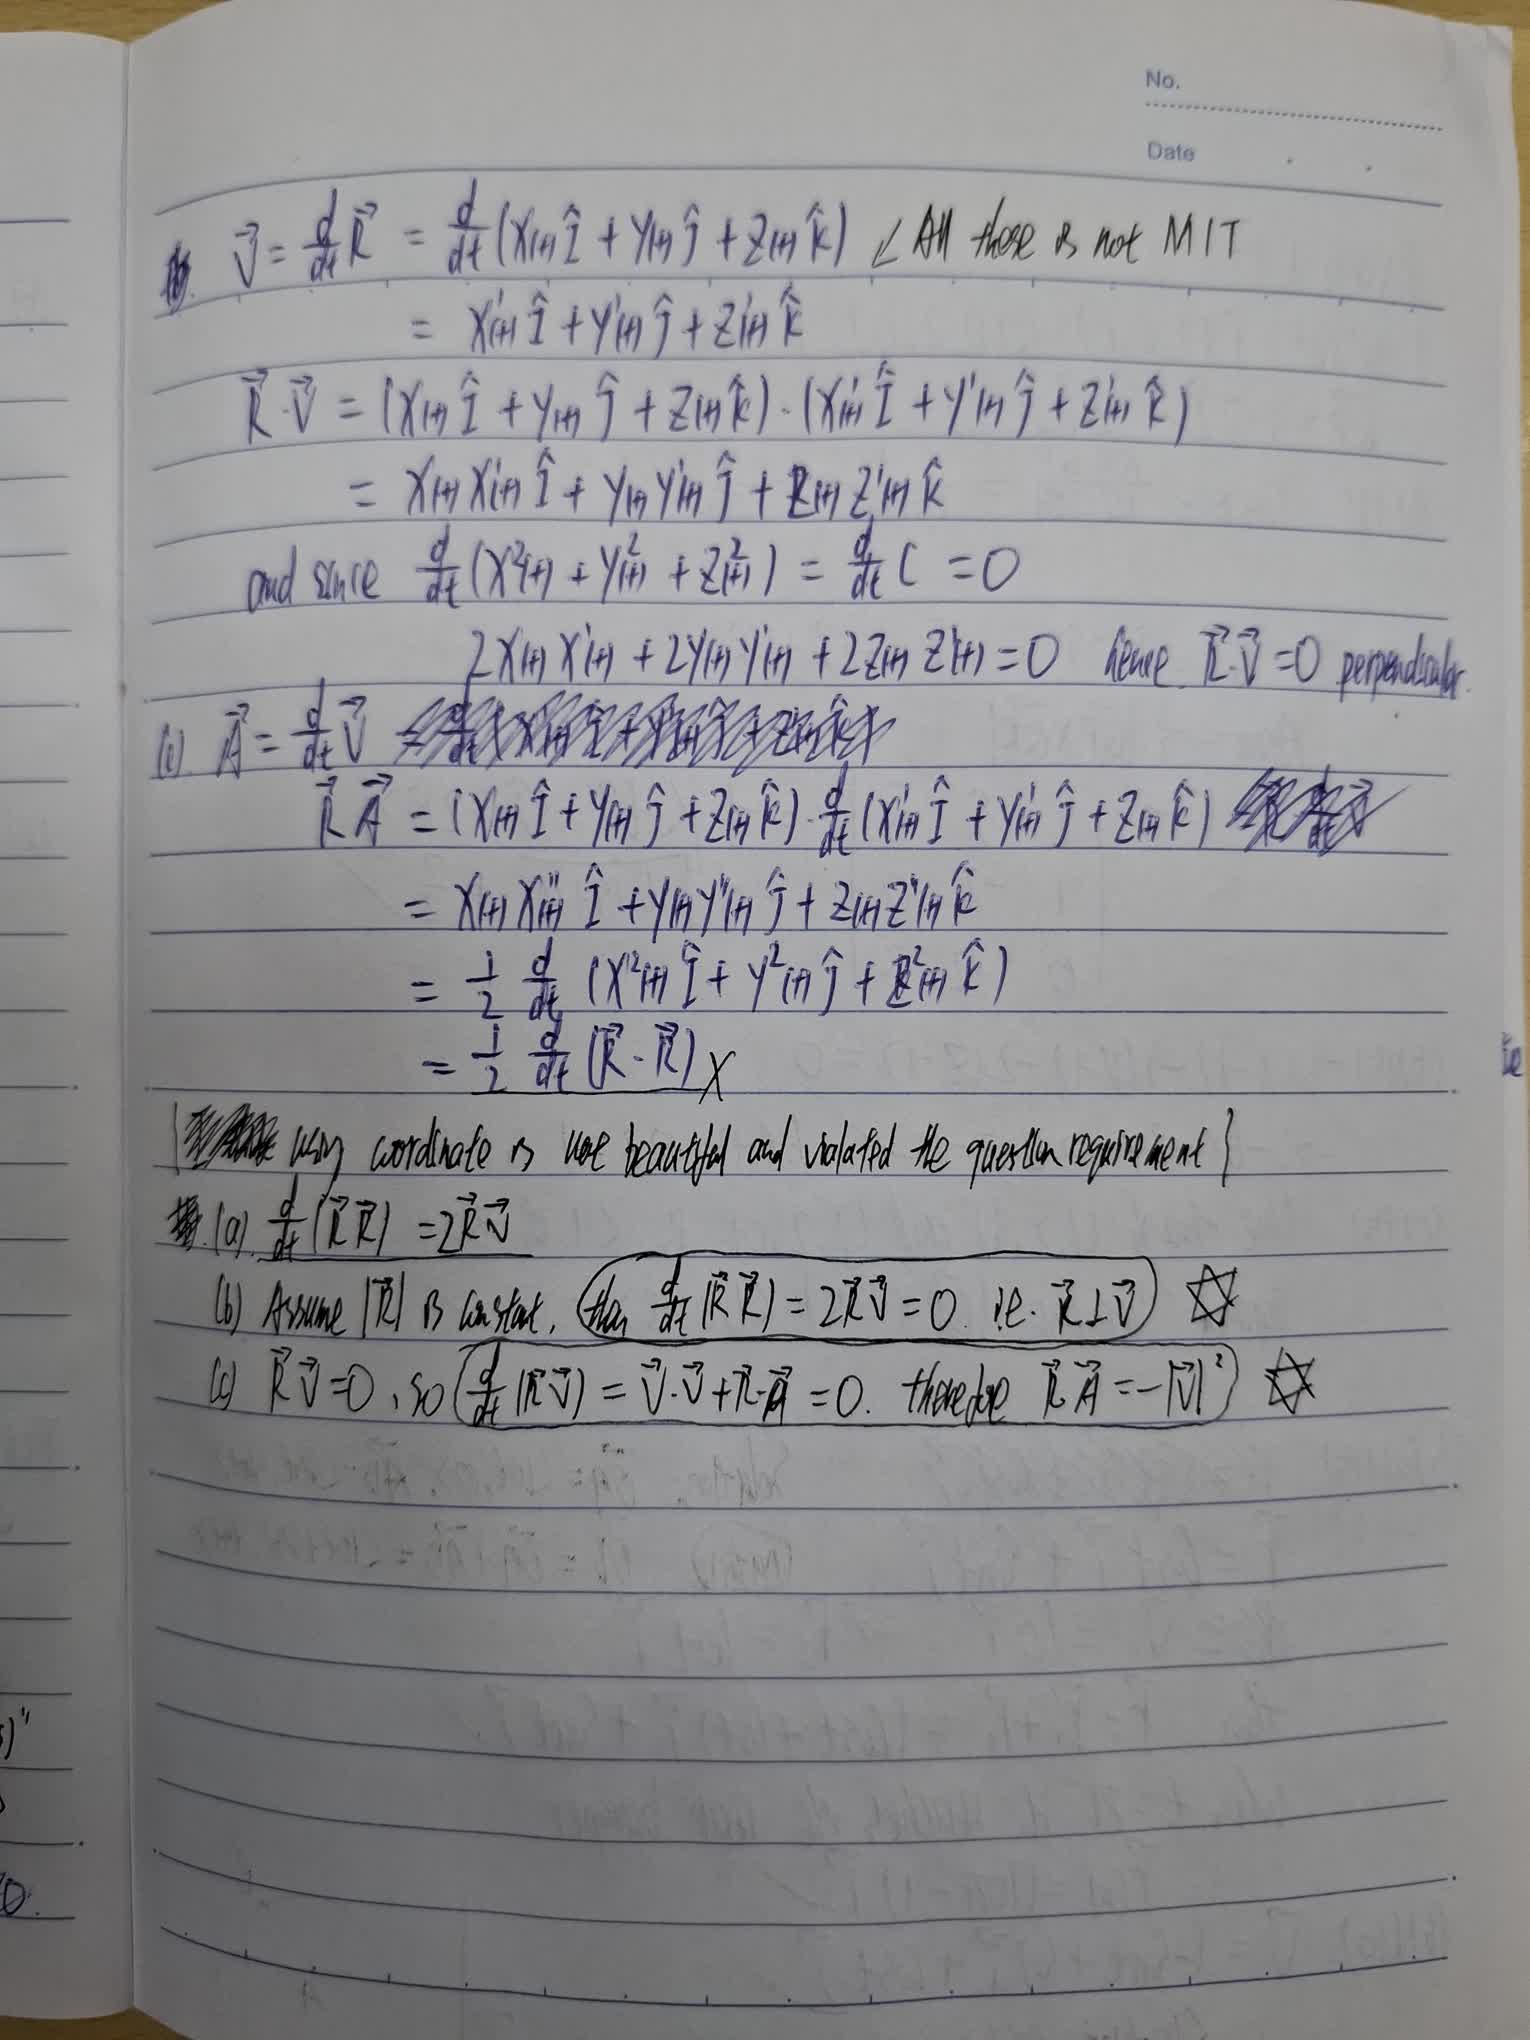 No.
Date
V⃗ = d/dt R⃗ = d/dt (X(t) Î + Y(t) ĵ + Z(t) k̂) ↙ All these is not MIT
= X'(t) Î + Y'(t) ĵ + Z'(t) k̂
R⃗·V⃗ = (X(t) Î + Y(t) ĵ + Z(t) k̂)·(X'(t) Î + Y'(t) ĵ + Z'(t) k̂)
= X(t)X'(t) Î + Y(t)Y'(t) ĵ + Z(t)Z'(t) k̂
and since d/dt (X²(t) + Y²(t) + Z²(t)) = d/dt C = 0
2X(t)X'(t) + 2Y(t)Y'(t) + 2Z(t)Z'(t) = 0 hence R⃗·V⃗ = 0 perpendicular.
(c). A⃗ = d/dt V⃗
R⃗ A⃗ = (X(t) Î + Y(t) ĵ + Z(t) k̂)·d/dt (X'(t) Î + Y'(t) ĵ + Z(t) k̂)
= X(t)X''(t) Î + Y(t)Y''(t) ĵ + Z(t)Z''(t) k̂
= 1/2 d/dt (X'²(t) Î + Y²(t) ĵ + Z²(t) k̂)
= 1/2 d/dt (R⃗·R⃗) X
using coordinate is not beautiful and violated the question requirement }
(a). d/dt (R⃗ R⃗) = 2R⃗V⃗
(b) Assume |R⃗| is constant, then d/dt (R⃗ R⃗) = 2R⃗V⃗ = 0. i.e. R⃗⊥V⃗ ☆
(c) R⃗V⃗=0, so d/dt (R⃗V⃗) = V⃗·V⃗ + R⃗·A⃗ = 0. therefore R⃗·A⃗ = -|V⃗|² ☆